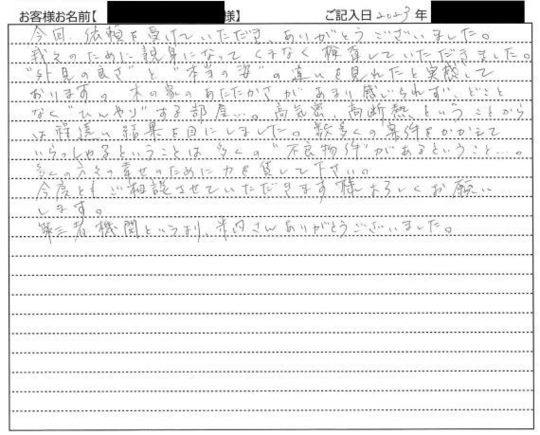 お客様お名前【 様】 ご記入日2023年
今回、依頼を受けていただき、ありがとうございました。
我々のために親身になって、くまなく検査していただきました。
"外見の良さ"と"本当の姿"の違いを見れたと実感して
おります。木の家のあたたかさがあまり感じられず、どこと
なく"ひんやり"する部屋…。高気密、高断熱、ということから
は程遠い結果を目にしました。数多くの案件をかかえて
いらっしゃるということは多くの"不良物件"があるということ…。
多くの方々の幸せのために力を貸して下さい。
今後ともご相談させていただきます様よろしくお願い
します。
第三者機関というより、米内さんありがとうございました。